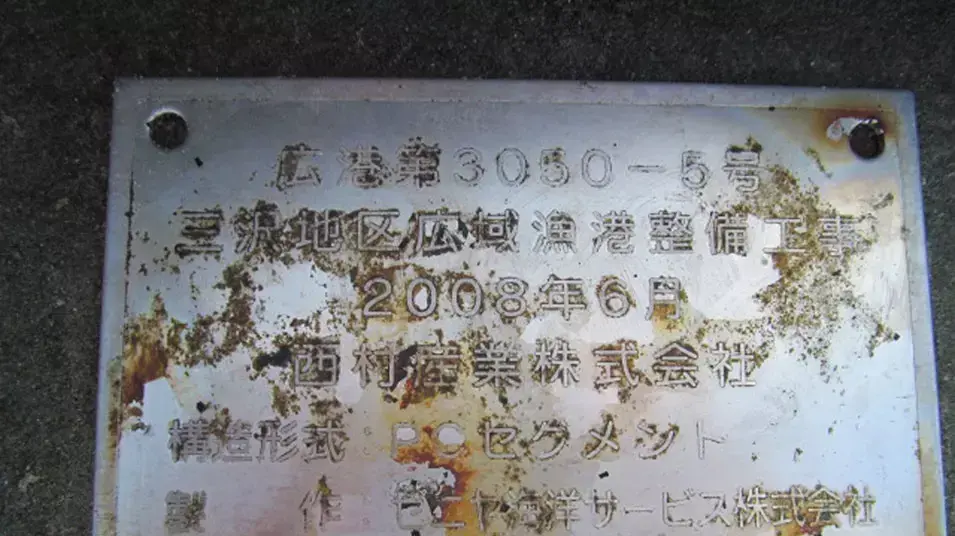 広港第3050-5号
三沢地区広域漁港整備工事
2008年6月
西村産業株式会社
構造形式:PCセグメント
製 作:ゼニヤ海洋サービス株式会社